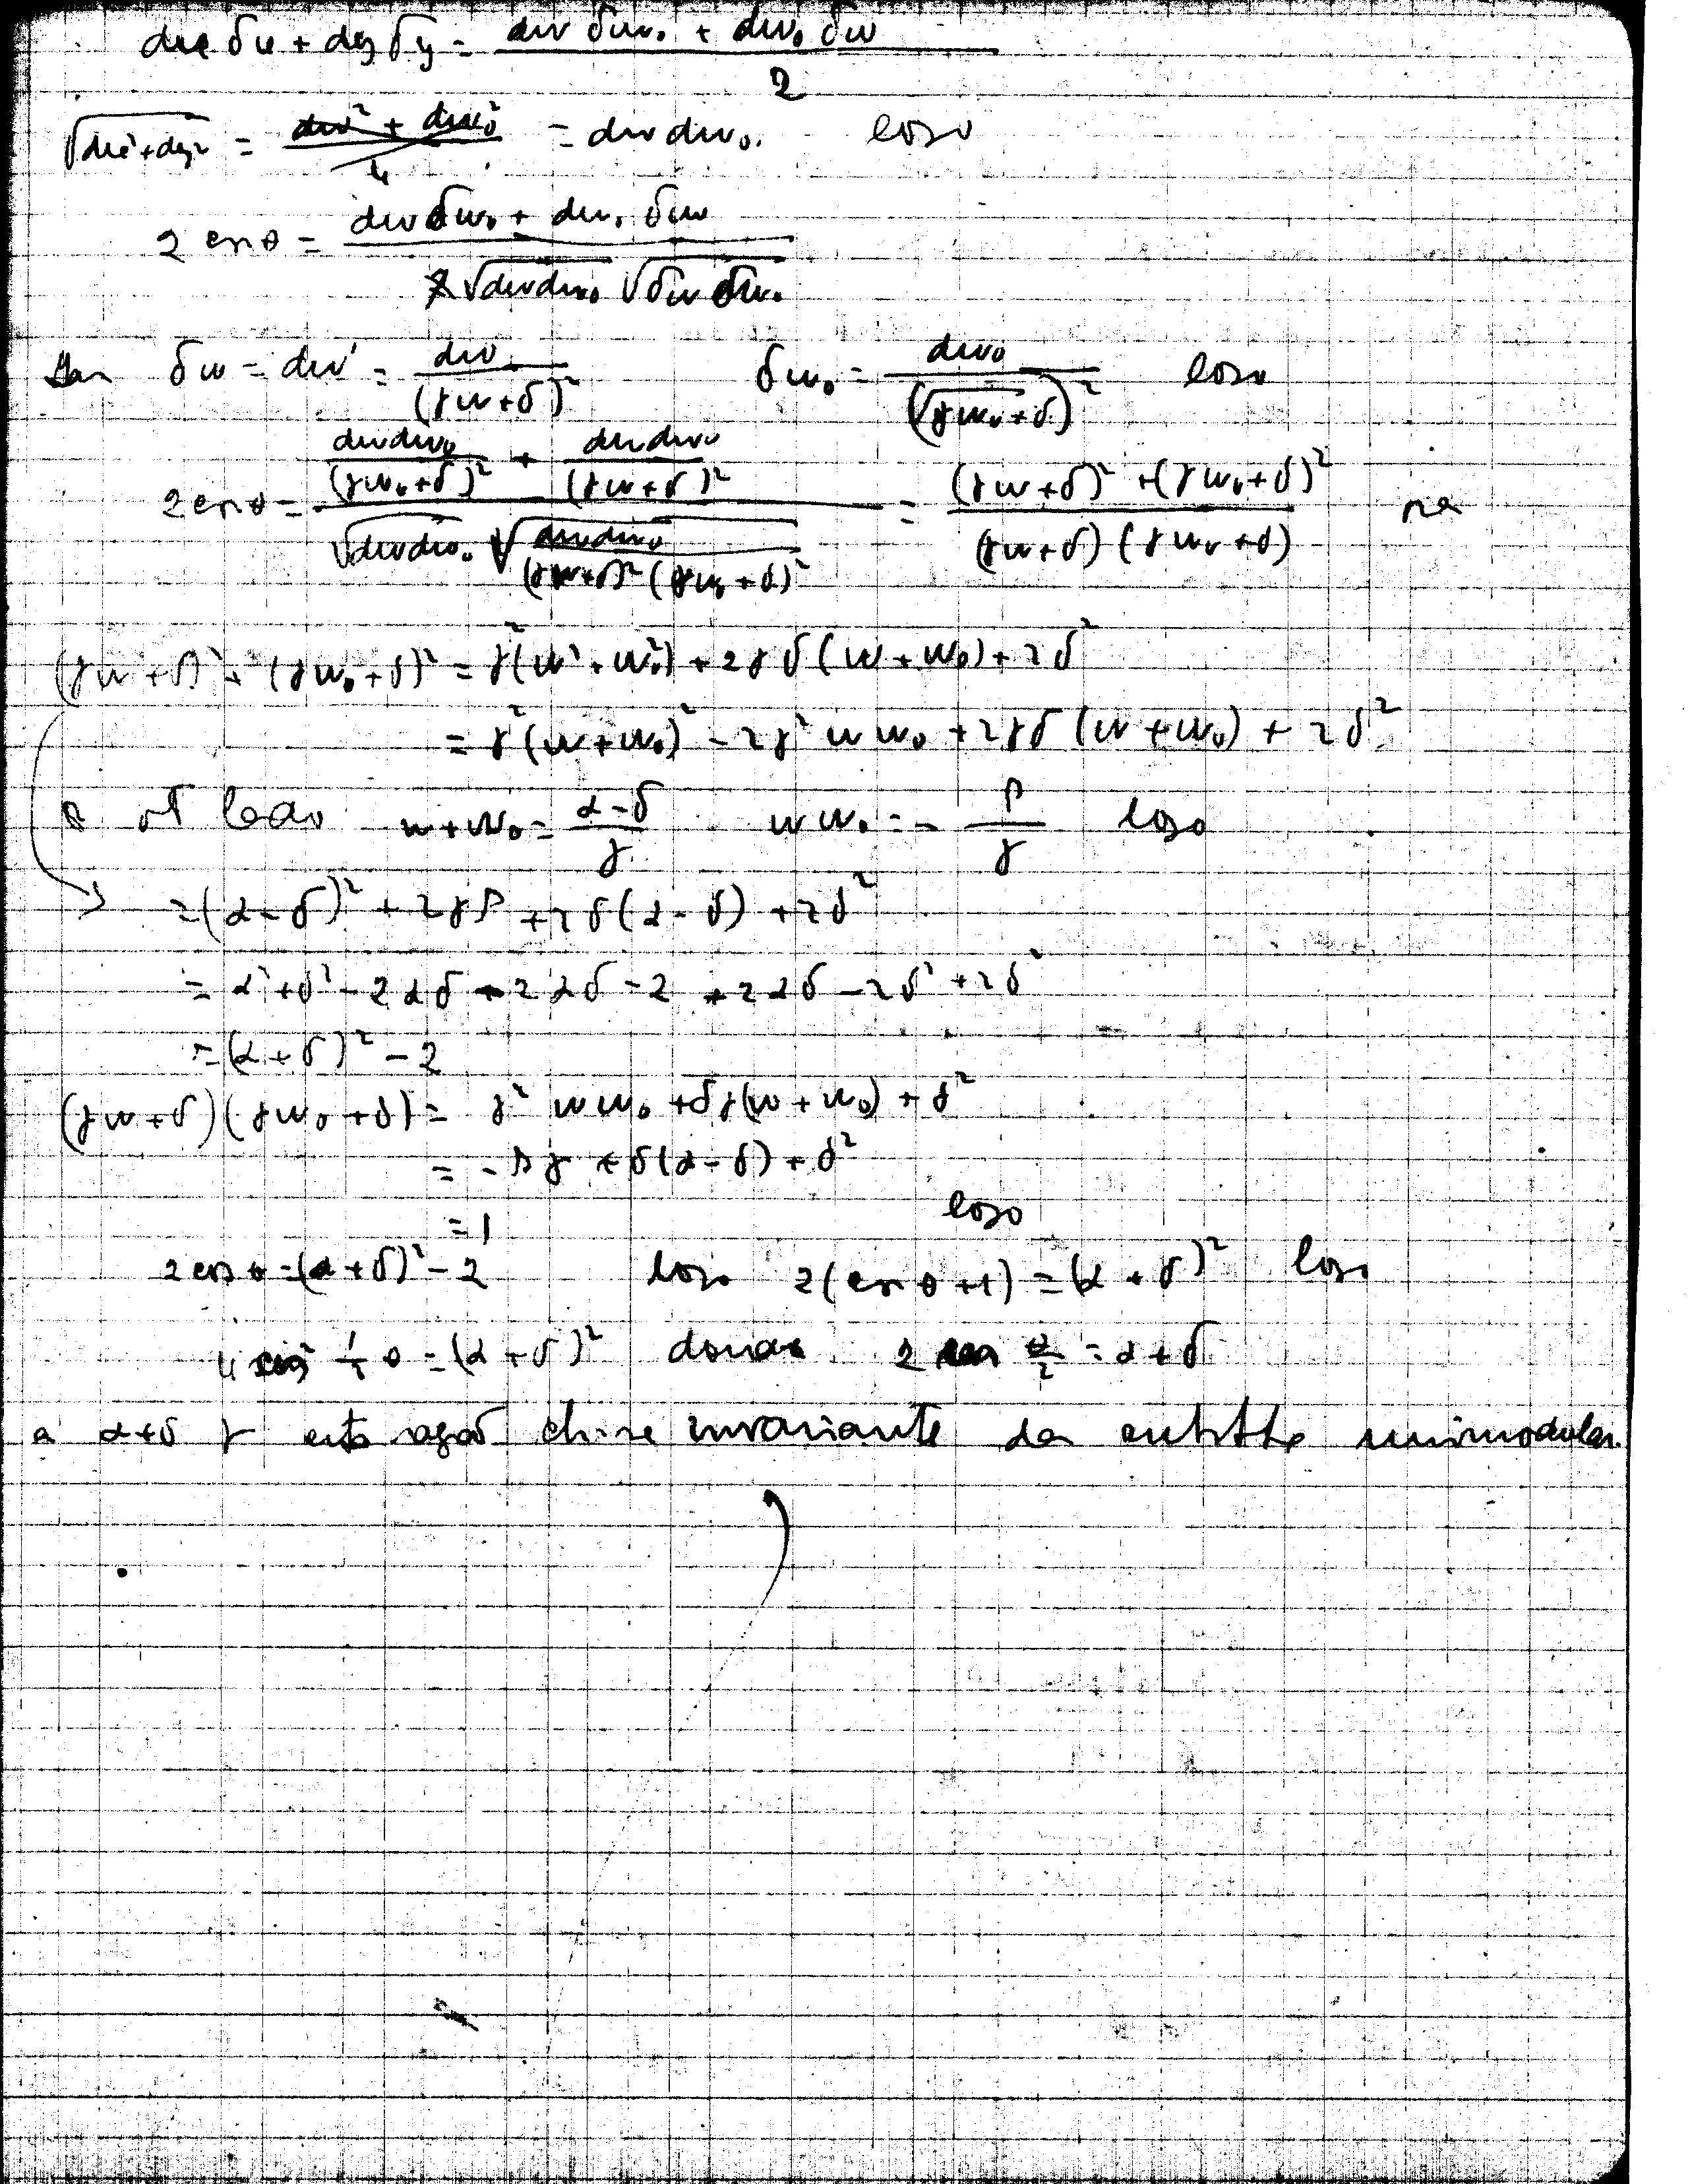 dx δx + dy δy = (dw δw₀ + dw₀ δw) / 2
√(dx²+dy²) = = dw dw₀. logo
2 cos θ = (dw δw₀ + dw₀ δw) / (√(dw dw₀) √(δw δw₀))
Mas δw = dw' = dw / (γw+δ)² δw₀ = dw₀ / (γw₀+δ)² logo
2 cos θ = (dw dw₀ / (γw₀+δ)² + dw dw₀ / (γw+δ)²) / (√(dw dw₀) √(dw dw₀ / (γw+δ)² (γw₀+δ)²)) = ((γw+δ)² + (γw₀+δ)²) / ((γw+δ)(γw₀+δ))
(γw+δ)² + (γw₀+δ)² = γ²(w²+w₀²) + 2γδ(w+w₀) + 2δ²
= γ²(w+w₀)² - 2γ² w w₀ + 2γδ(w+w₀) + 2δ²
w+w₀ = (α-δ)/γ w w₀ = - β/γ logo
= (α-δ)² + 2γβ + 2δ(α-δ) + 2δ²
= α²+δ² - 2αδ + 2αδ - 2 + 2αδ - 2δ² + 2δ²
= (α+δ)² - 2
(γw+δ)(γw₀+δ) = γ² w w₀ + δγ(w+w₀) + δ²
= -βγ + δ(α-δ) + δ²
= 1 logo
2 cos θ = (α+δ)² - 2 logo 2(cos θ + 1) = (α+δ)² logo
4 cos² ½ θ = (α+δ)² donde 2 cos θ/2 = α+δ
a α+δ invariante da unimodular.